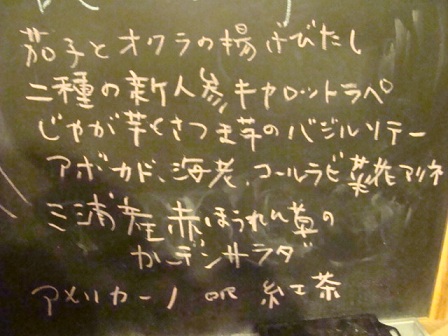 茄子とオクラの揚げびたし
二種の新人参キャロットラペ
じゃが芋とさつま芋のバジルソテー
アボカド、海老、コールラビ菜花マリネ
三浦産赤ほうれん草の
ガーデンサラダ
アメリカーノ or 紅茶